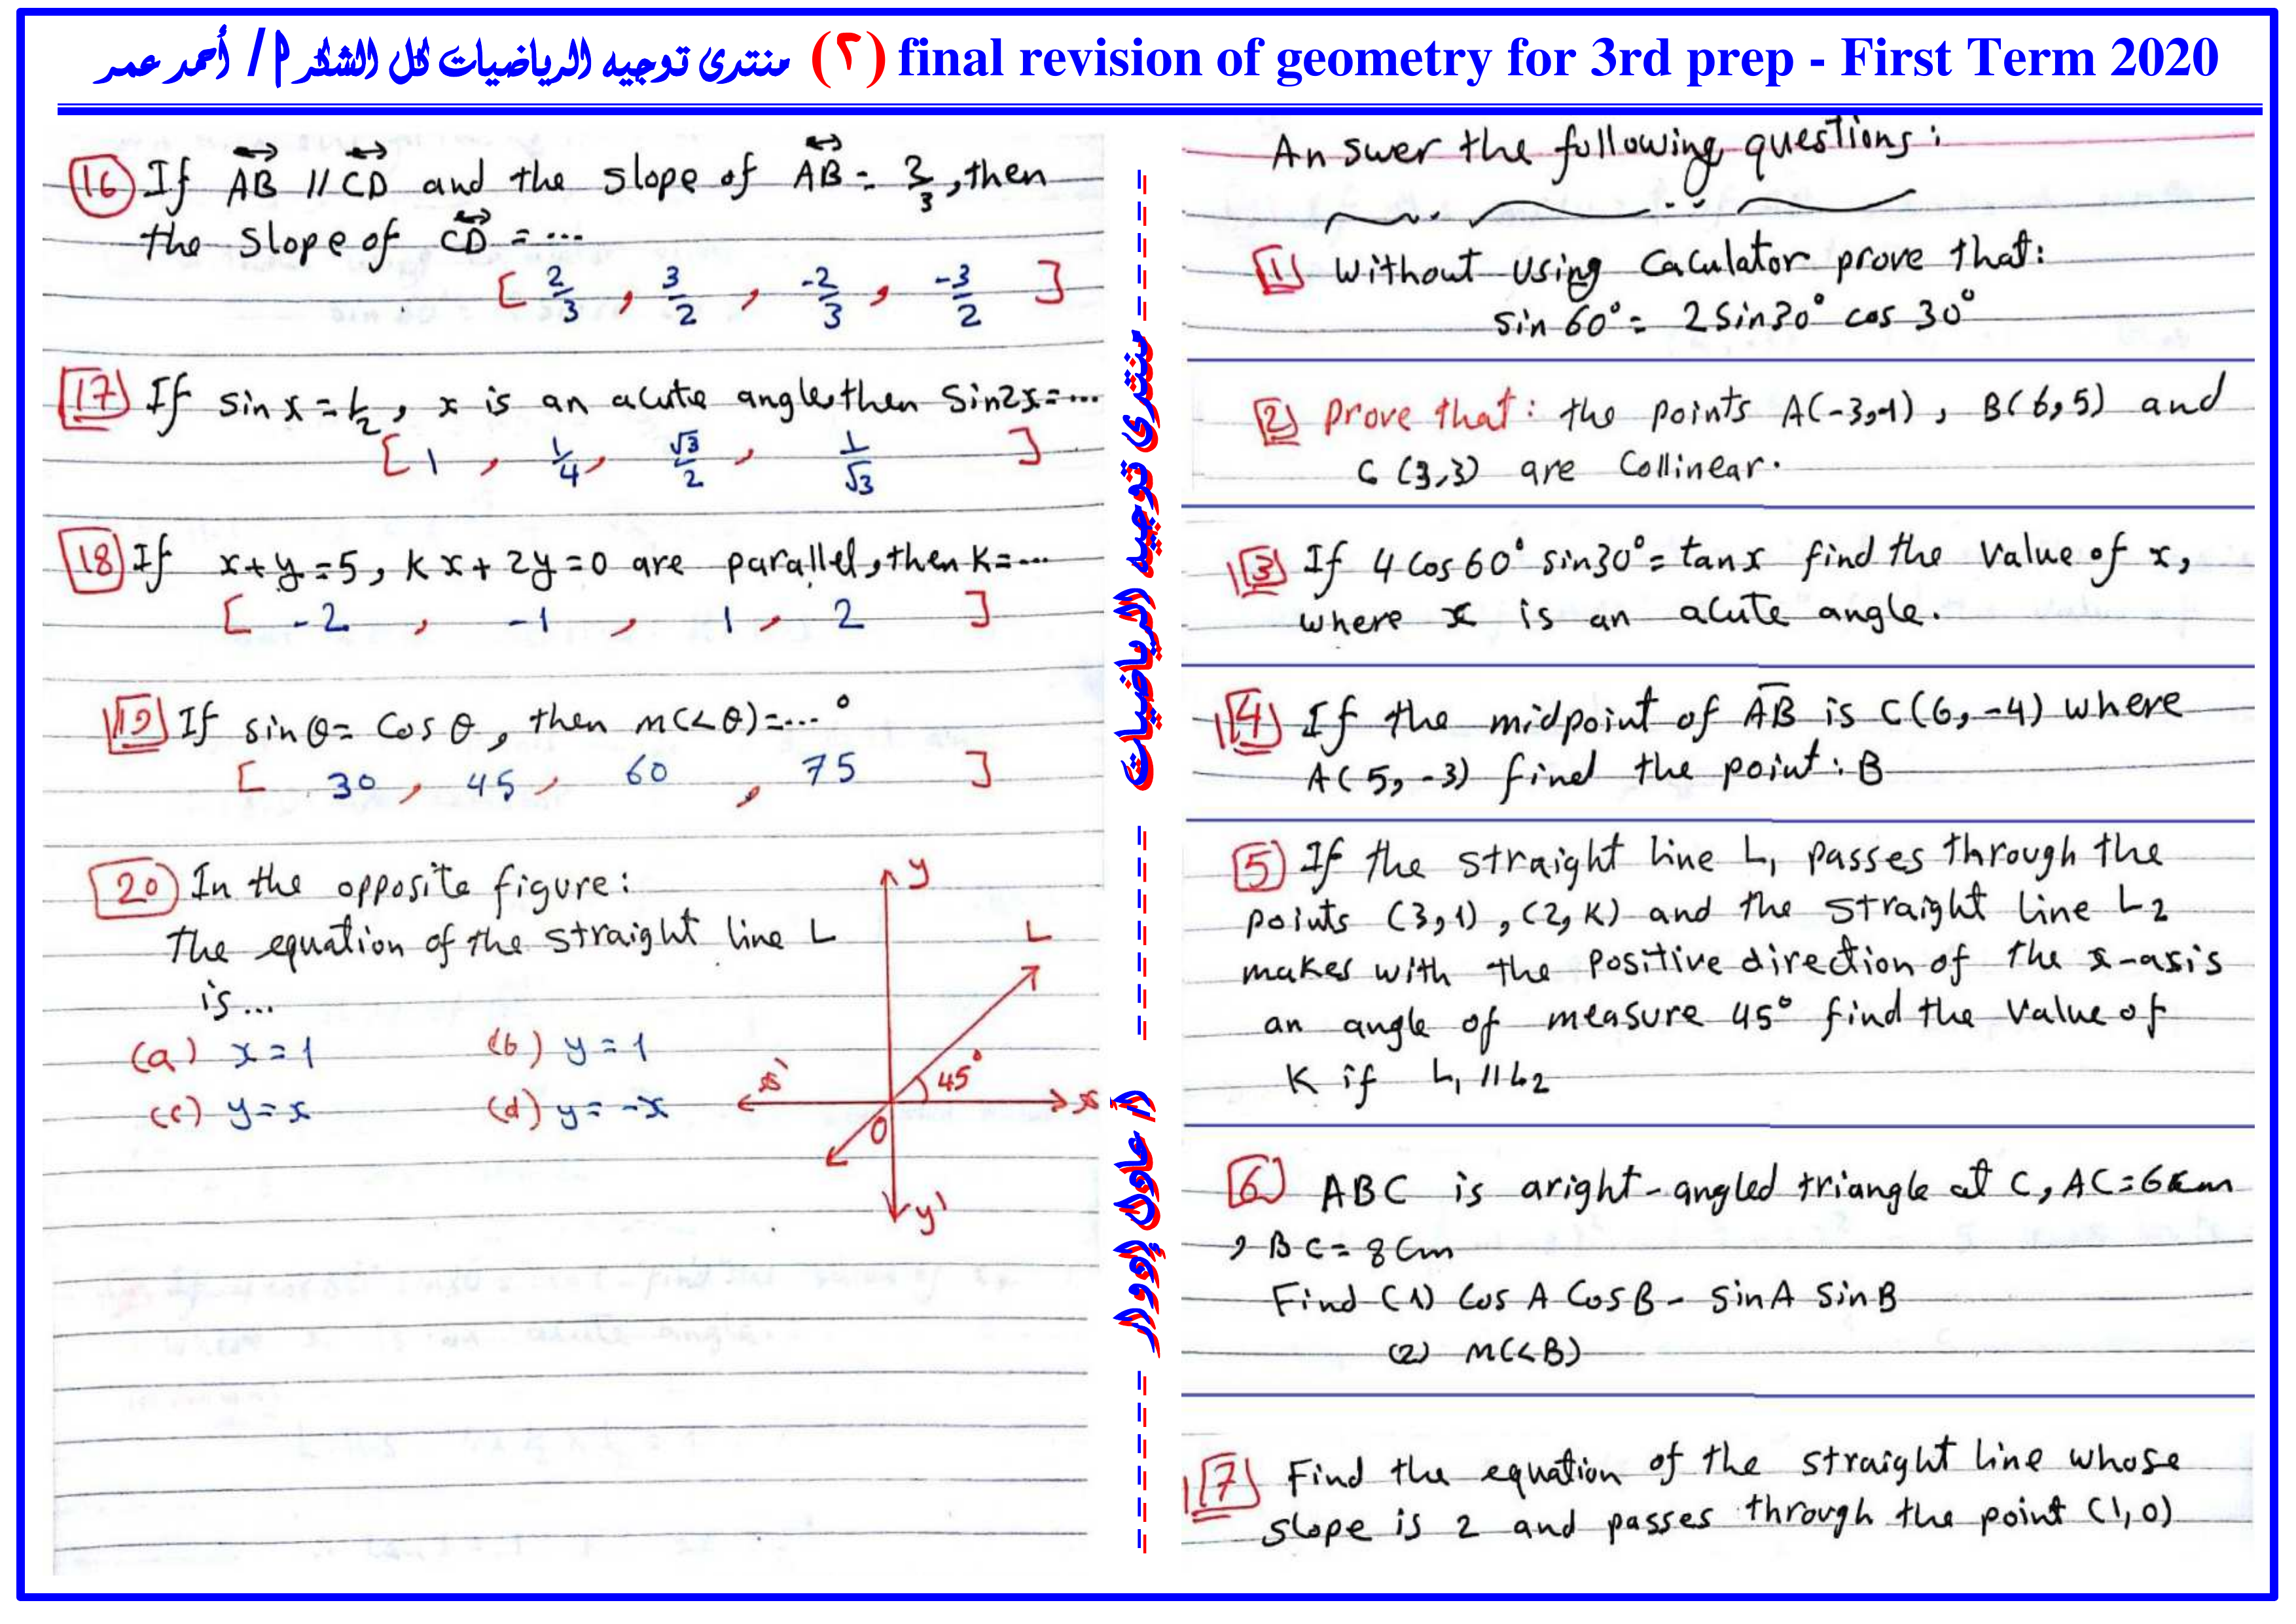 final revision of geometry for 3rd prep - First Term 2020 (٢) منتدى توجيه الرياضيات كل الشكر أ / أحمد عمر
(16) If AB // CD and the slope of AB = 2/3, then
the slope of CD = ...
[ 2/3 , 3/2 , -2/3 , -3/2 ]
17 If sin x = 1/2, x is an acute angle, then Sin2x = ...
[ 1 , 1/4 , √3/2 , 1/√3 ]
18 If x + y = 5, kx + 2y = 0 are parallel, then K = ...
[ -2 , -1 , 1 , 2 ]
19 If sin θ = Cos θ, then m(<θ) = ... °
[ 30 , 45 , 60 , 75 ]
20 In the opposite figure:
The equation of the straight line L
is ...
(a) x = 1 (b) y = 1
(c) y = x (d) y = -x
y
L
45°
x'
x
O
y'
منتدى توجيه الرياضيات
أ/ عادل إدوار
Answer the following questions:
1 Without using Caculator prove that:
Sin 60° = 2 Sin 30° cos 30°
2 Prove that: the points A(-3,-1), B(6,5) and
C (3,3) are Collinear.
3 If 4 Cos 60° sin 30° = tan x find the value of x,
where x is an acute angle.
4 If the midpoint of AB is C(6,-4) where
A(5,-3) find the point: B
5 If the straight line L1 passes through the
points (3,1), (2,K) and the straight line L2
makes with the positive direction of the x-axis
an angle of measure 45° find the value of
K if L1 // L2
6 ABC is aright-angled triangle at C, AC = 6 cm
, BC = 8 Cm
Find (1) Cos A Cos B - sin A sin B
(2) m(<B)
7 Find the equation of the straight line whose
slope is 2 and passes through the point (1,0)